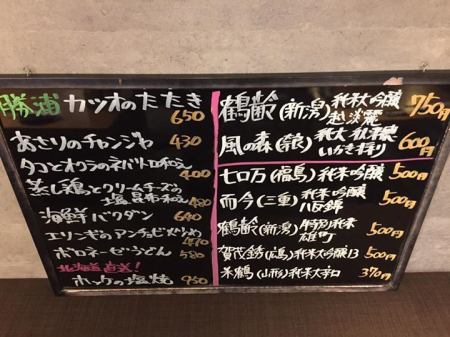 勝浦 カツオのたたき
650
あさりのチャンジャ 430
タコとオクラのネバトロ和え
400
蒸し鶏とクリームチーズの
塩昆布和え 480
海鮮バクダン 640
エリンギのアンチョビ炒め
470
ボロネーゼうどん 580
北海道直送!
ホッケの塩焼 950
鶴齢(新潟)純米大吟醸
750円
風の森(奈良)純大
600円
七ロ万(福島)純米吟醸
500円
而今(三重)純米吟醸
八反錦 500円
鶴齢(新潟)純米
雄町 500円
賀茂金秀(広島)純米大吟醸13 500円
米鶴(山形)純米辛口 370円